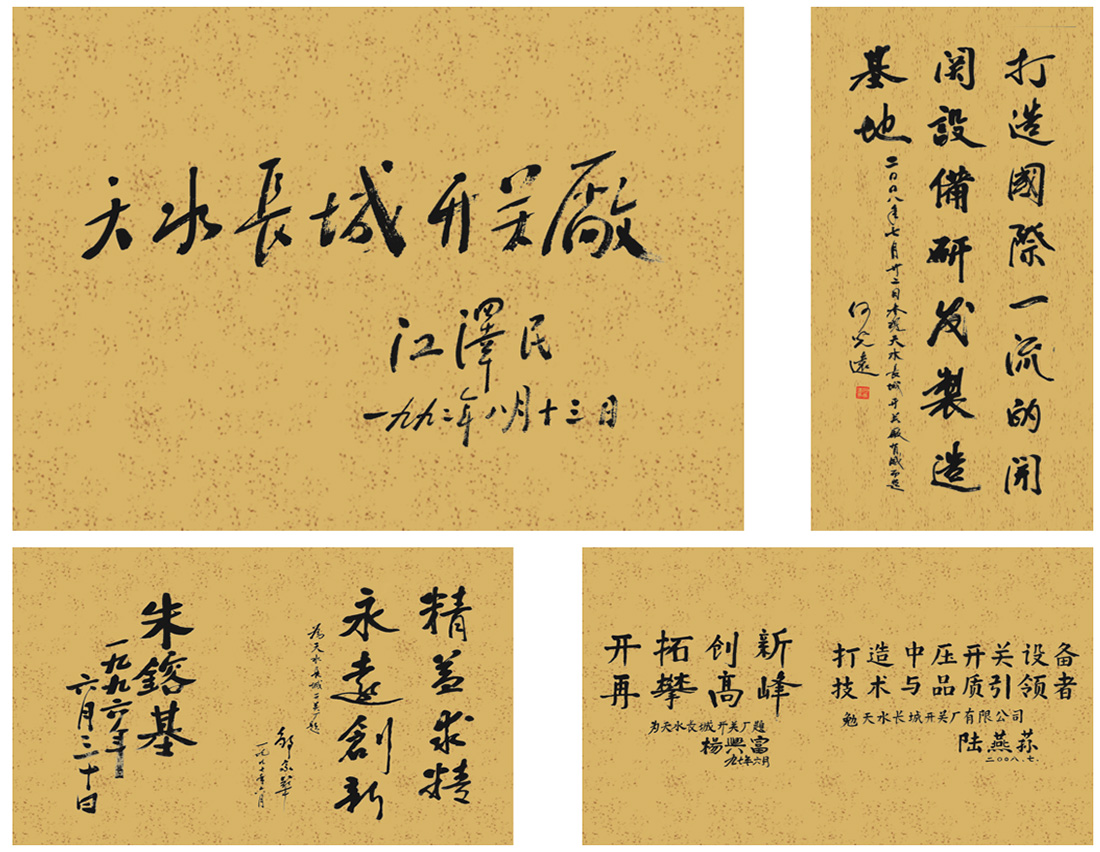 天水長城开关廠
江澤民
一九九二年八月十三日
打造國際一流的開
関設備研发製造
基地
二〇〇八年七月廿二日
何光遠
精益求精
永遠創新
為天水長城
朱鎔基
一九九六年
六月三十日
开拓创新
再攀高峰
为天水长城开关厂题
楊興富
九七年六月
打造中压开关设备
技术与品质引领者
勉天水长城开关厂有限公司
陆燕荪
二〇〇八.七.